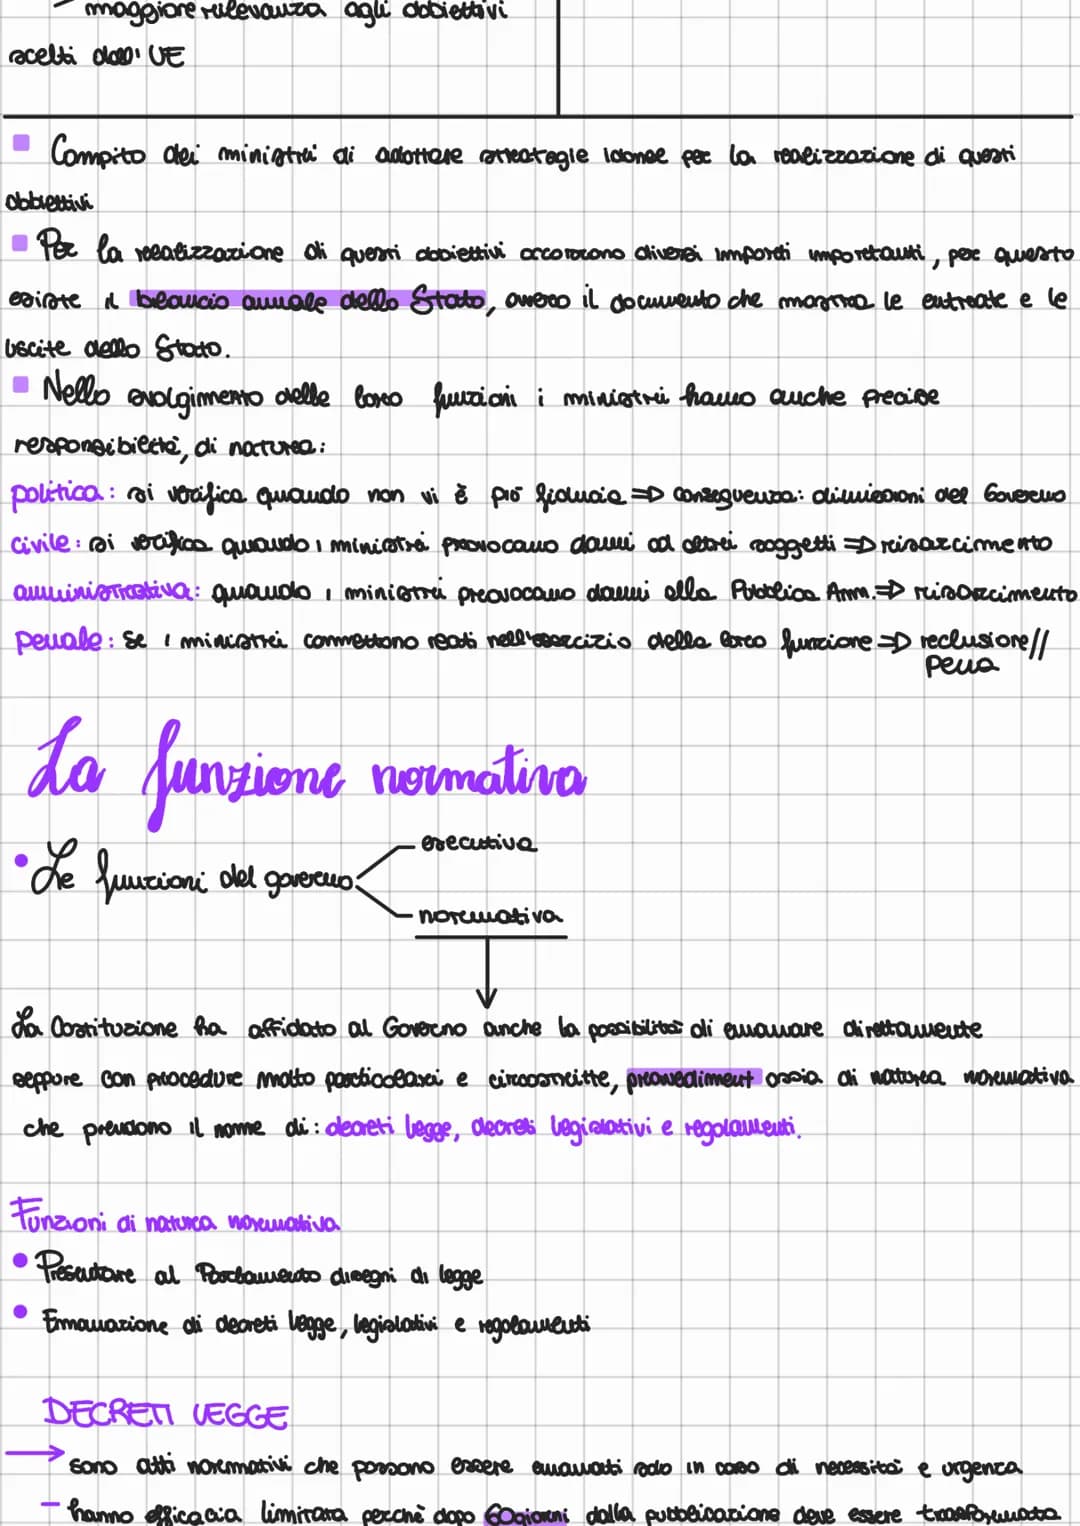 maggiore rilevanza agli obbiettivi
scelti dall' UE
Compito dei ministri di adottare strategie idonee per la realizzazione di questi
obbiettivi
Per la realizzazione di questi obbiettivi occorrono diversi importi importanti, per questo
esiste il bilancio annuale dello Stato, ovvero il documento che mostra le entrate e le
uscite dello Stato.
Nello svolgimento delle loro funzioni i ministri hanno anche precise
responsabilità, di natura:
politica: si verifica quando non vi è più fiducia => conseguenza: dimissioni del Governo
civile: si verifica quando i ministri provocano danni ad altri soggetti => risarcimento
amministrativa: quando i ministri provocano danni alla Pubblica Amm. => risarcimento
penale: se i ministri commettono reati nell'esercizio della loro funzione => reclusione//
pena
La funzione normativa
Le funzioni del governo
esecutiva
normativa
La Costituzione ha affidato al Governo anche la possibilità di emanare direttamente
seppure con procedure molto particolari e circoscritte, provvedimenti ossia di natura normativa
che prendono il nome di: decreti legge, decreti legislativi e regolamenti.
Funzioni di natura normativa
Presentare al Parlamento disegni di legge
Emanazione di decreti legge, legislativi e regolamenti
DECRETI LEGGE
→ sono atti normativi che possono essere emanati solo in caso di necessità e urgenza
- hanno efficacia limitata perché dopo 60 giorni dalla pubblicazione deve essere trasformato